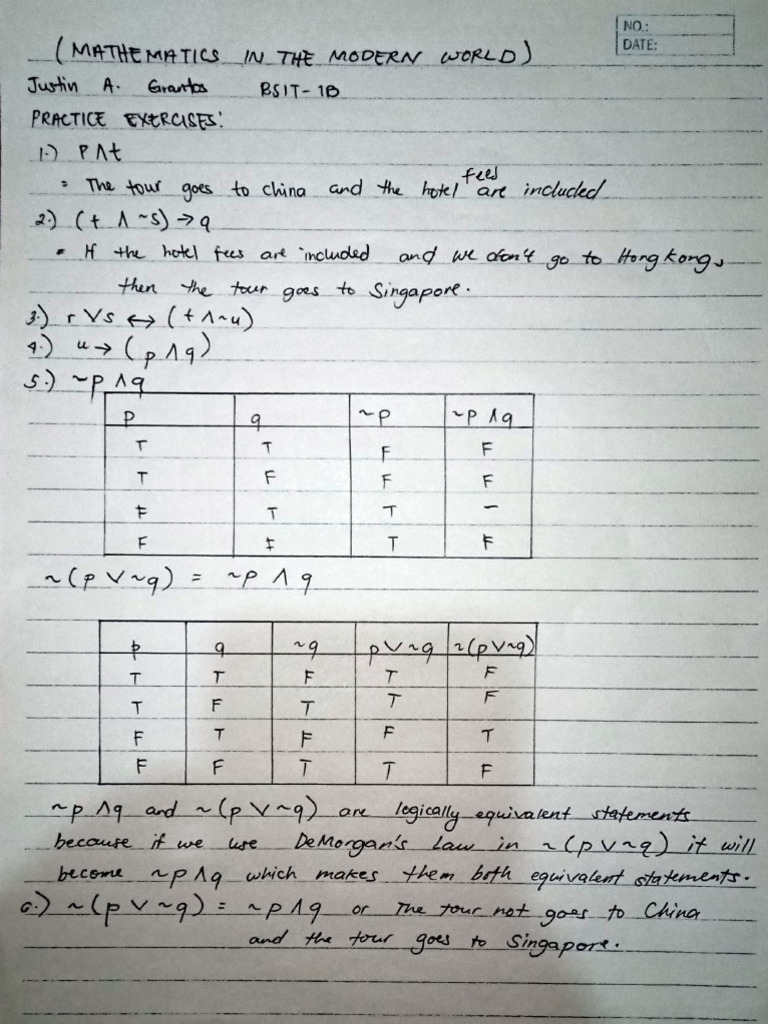 NO.:
DATE:
(MATHEMATICS IN THE MODERN WORLD)
Justin A. BSIT-1B
PRACTICE EXERCISES:
1.) P∧t
= The tour goes to china and the hotel fees are included
2.) (t ∧ ~s) → q
• If the hotel fees are included and we don't go to Hong kong,
then the tour goes to Singapore.
3.) r ∨ s ↔ (t ∧ ~u)
4.) u → (p ∧ q)
5.) ~p ∧ q
p q ~p ~p ∧ q
T T F F
T F F F
F T T –
F F T F
~(p ∨ ~q) = ~p ∧ q
p q ~q p ∨ ~q ~(p ∨ ~q)
T T F T F
T F T T F
F T F F T
F F T T F
~p ∧ q and ~(p ∨ ~q) are logically equivalent statements
because if we use DeMorgan's Law in ~(p ∨ ~q) it will
become ~p ∧ q which makes them both equivalent statements.
6.) ~(p ∨ ~q) = ~p ∧ q or The tour not goes to China
and the tour goes to Singapore.